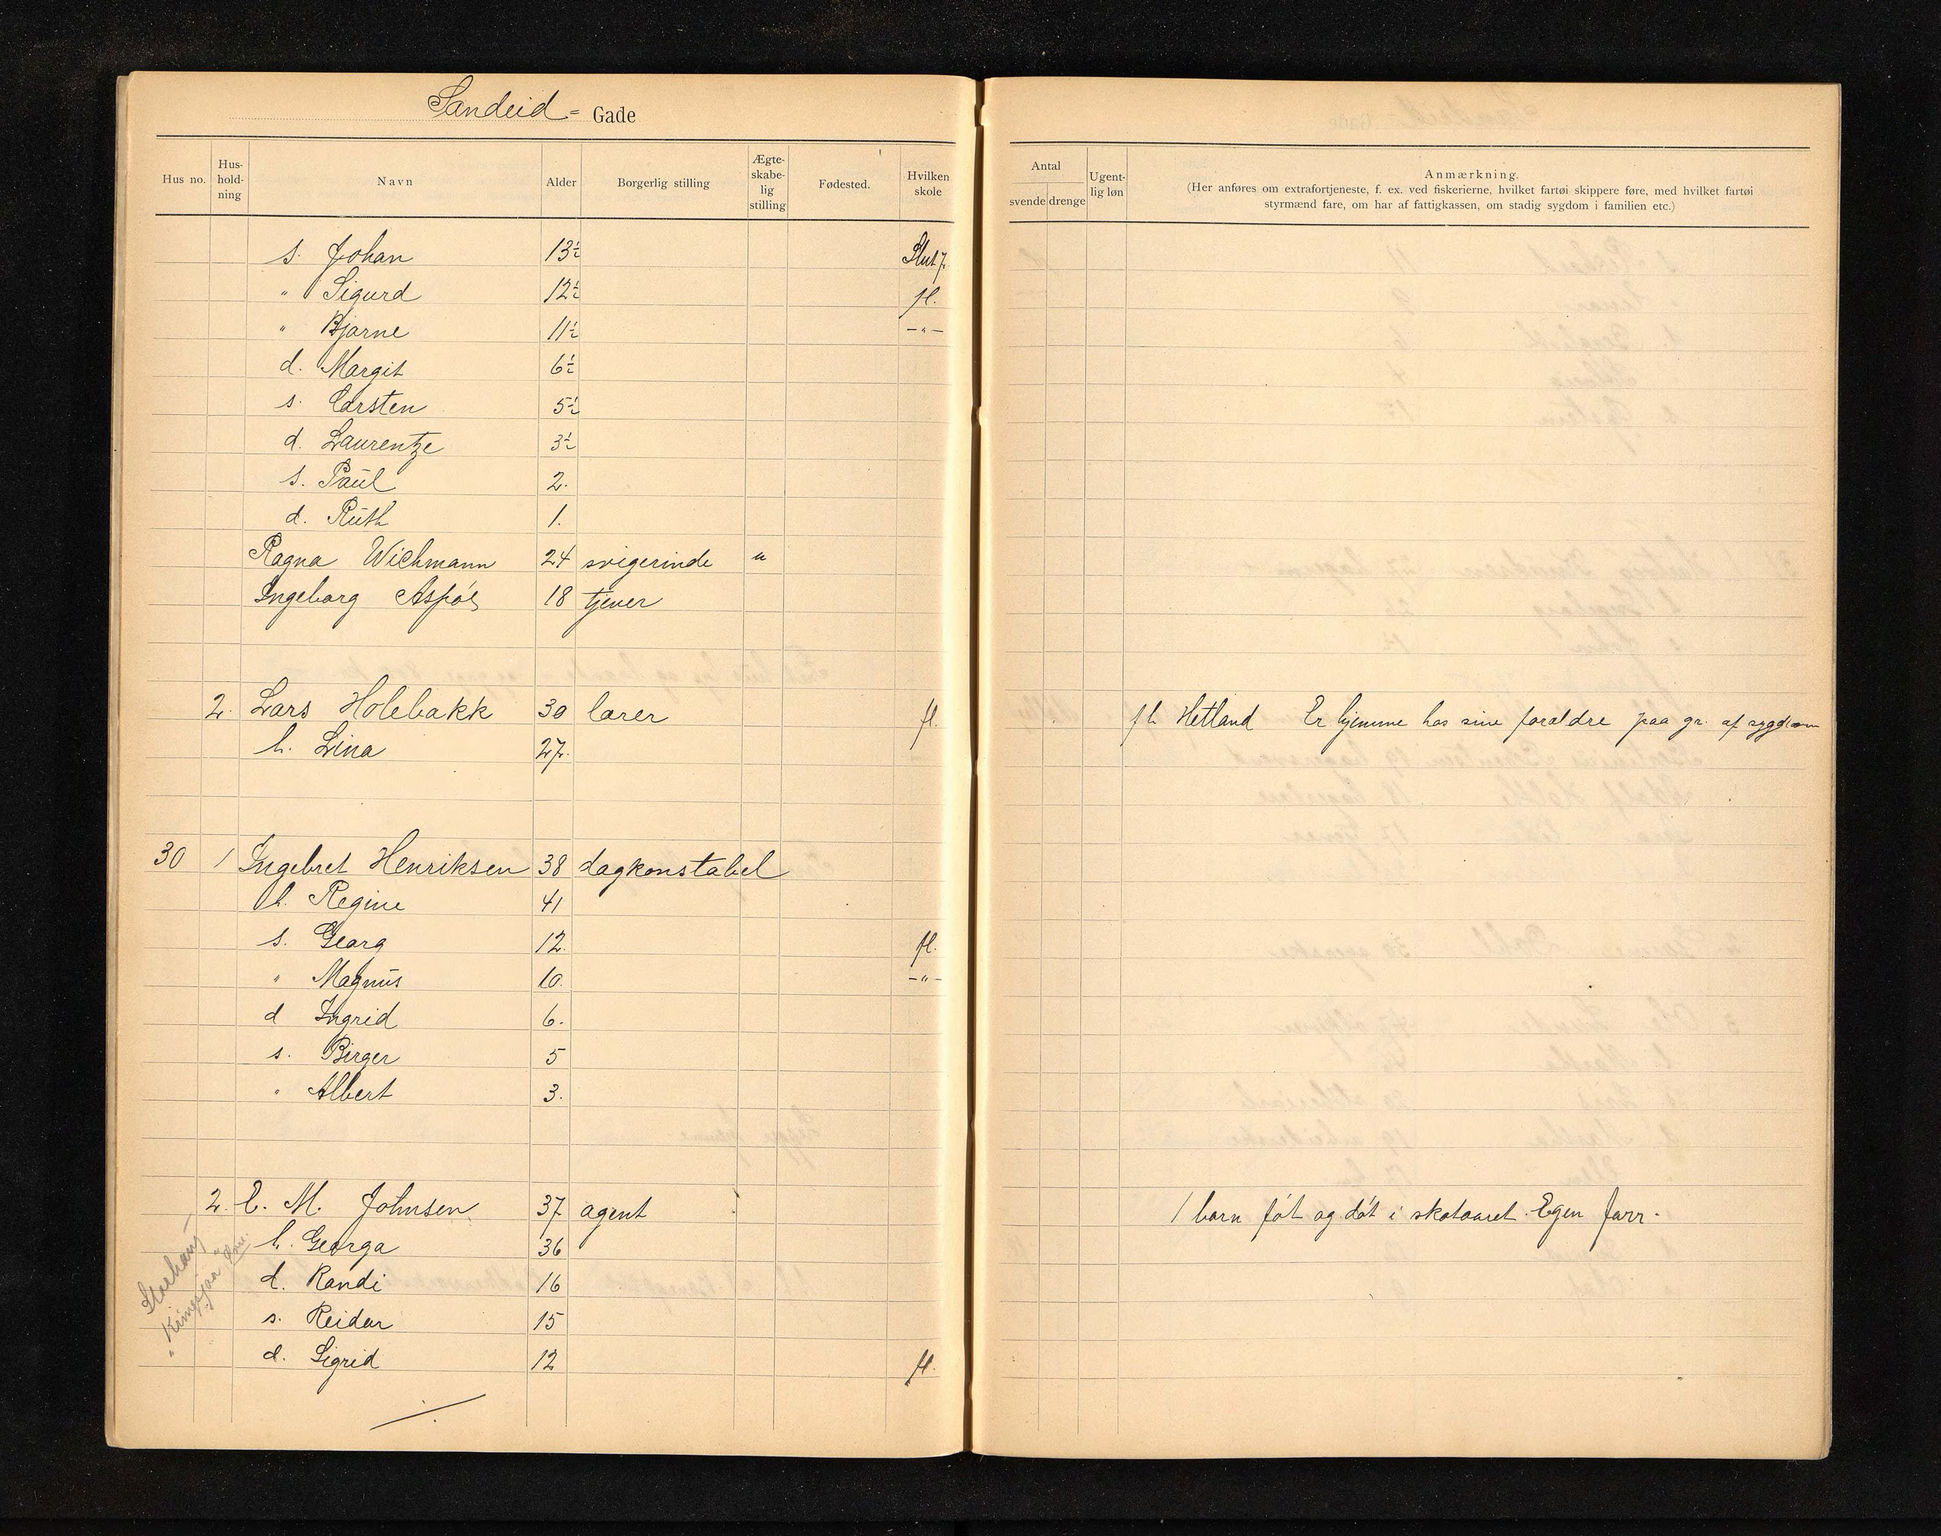 Sandeid = Gade
Hus no. Hus-hold-ning Navn Alder Borgerlig stilling Ægte-skabe-lig stilling Fødested. Hvilken skole
Antal svende drenge Ugent-lig løn Anmærkning.
(Her anføres om extrafortjeneste, f. ex. ved fiskerierne, hvilket fartøi skippere føre, med hvilket fartøi
styrmænd fare, om har af fattigkassen, om stadig sygdom i familien etc.)
s. Johan 13½
" Sigurd 12½ fl.
" Bjarne 11½ -"-
d. Margit 6½
s. Carsten 5½
d. Laurentze 3½
s. Paul 2.
d. Ruth 1.
Ragna Wichmann 24 svigerinde u
Ingeborg 18 tjener
2. Lars Holebakk 30 lærer fl. Hetland Er hjemme hos sine forældre paa gr. af sygdom
h. Lina 27.
30 1 Ingebret Henriksen 38 dagkonstabel
h. Regine 41
s. Georg 12. fl.
" Magnus 10. -"-
d Ingrid 6.
s. Birger 5
" Albert 3.
2. E. M. Johnsen 37 agent 1 barn føt og døt i skataaret. Egen farr.
h. Georga 36
d. Randi 16
s. Reidar 15
d. Sigrid 12 fl.